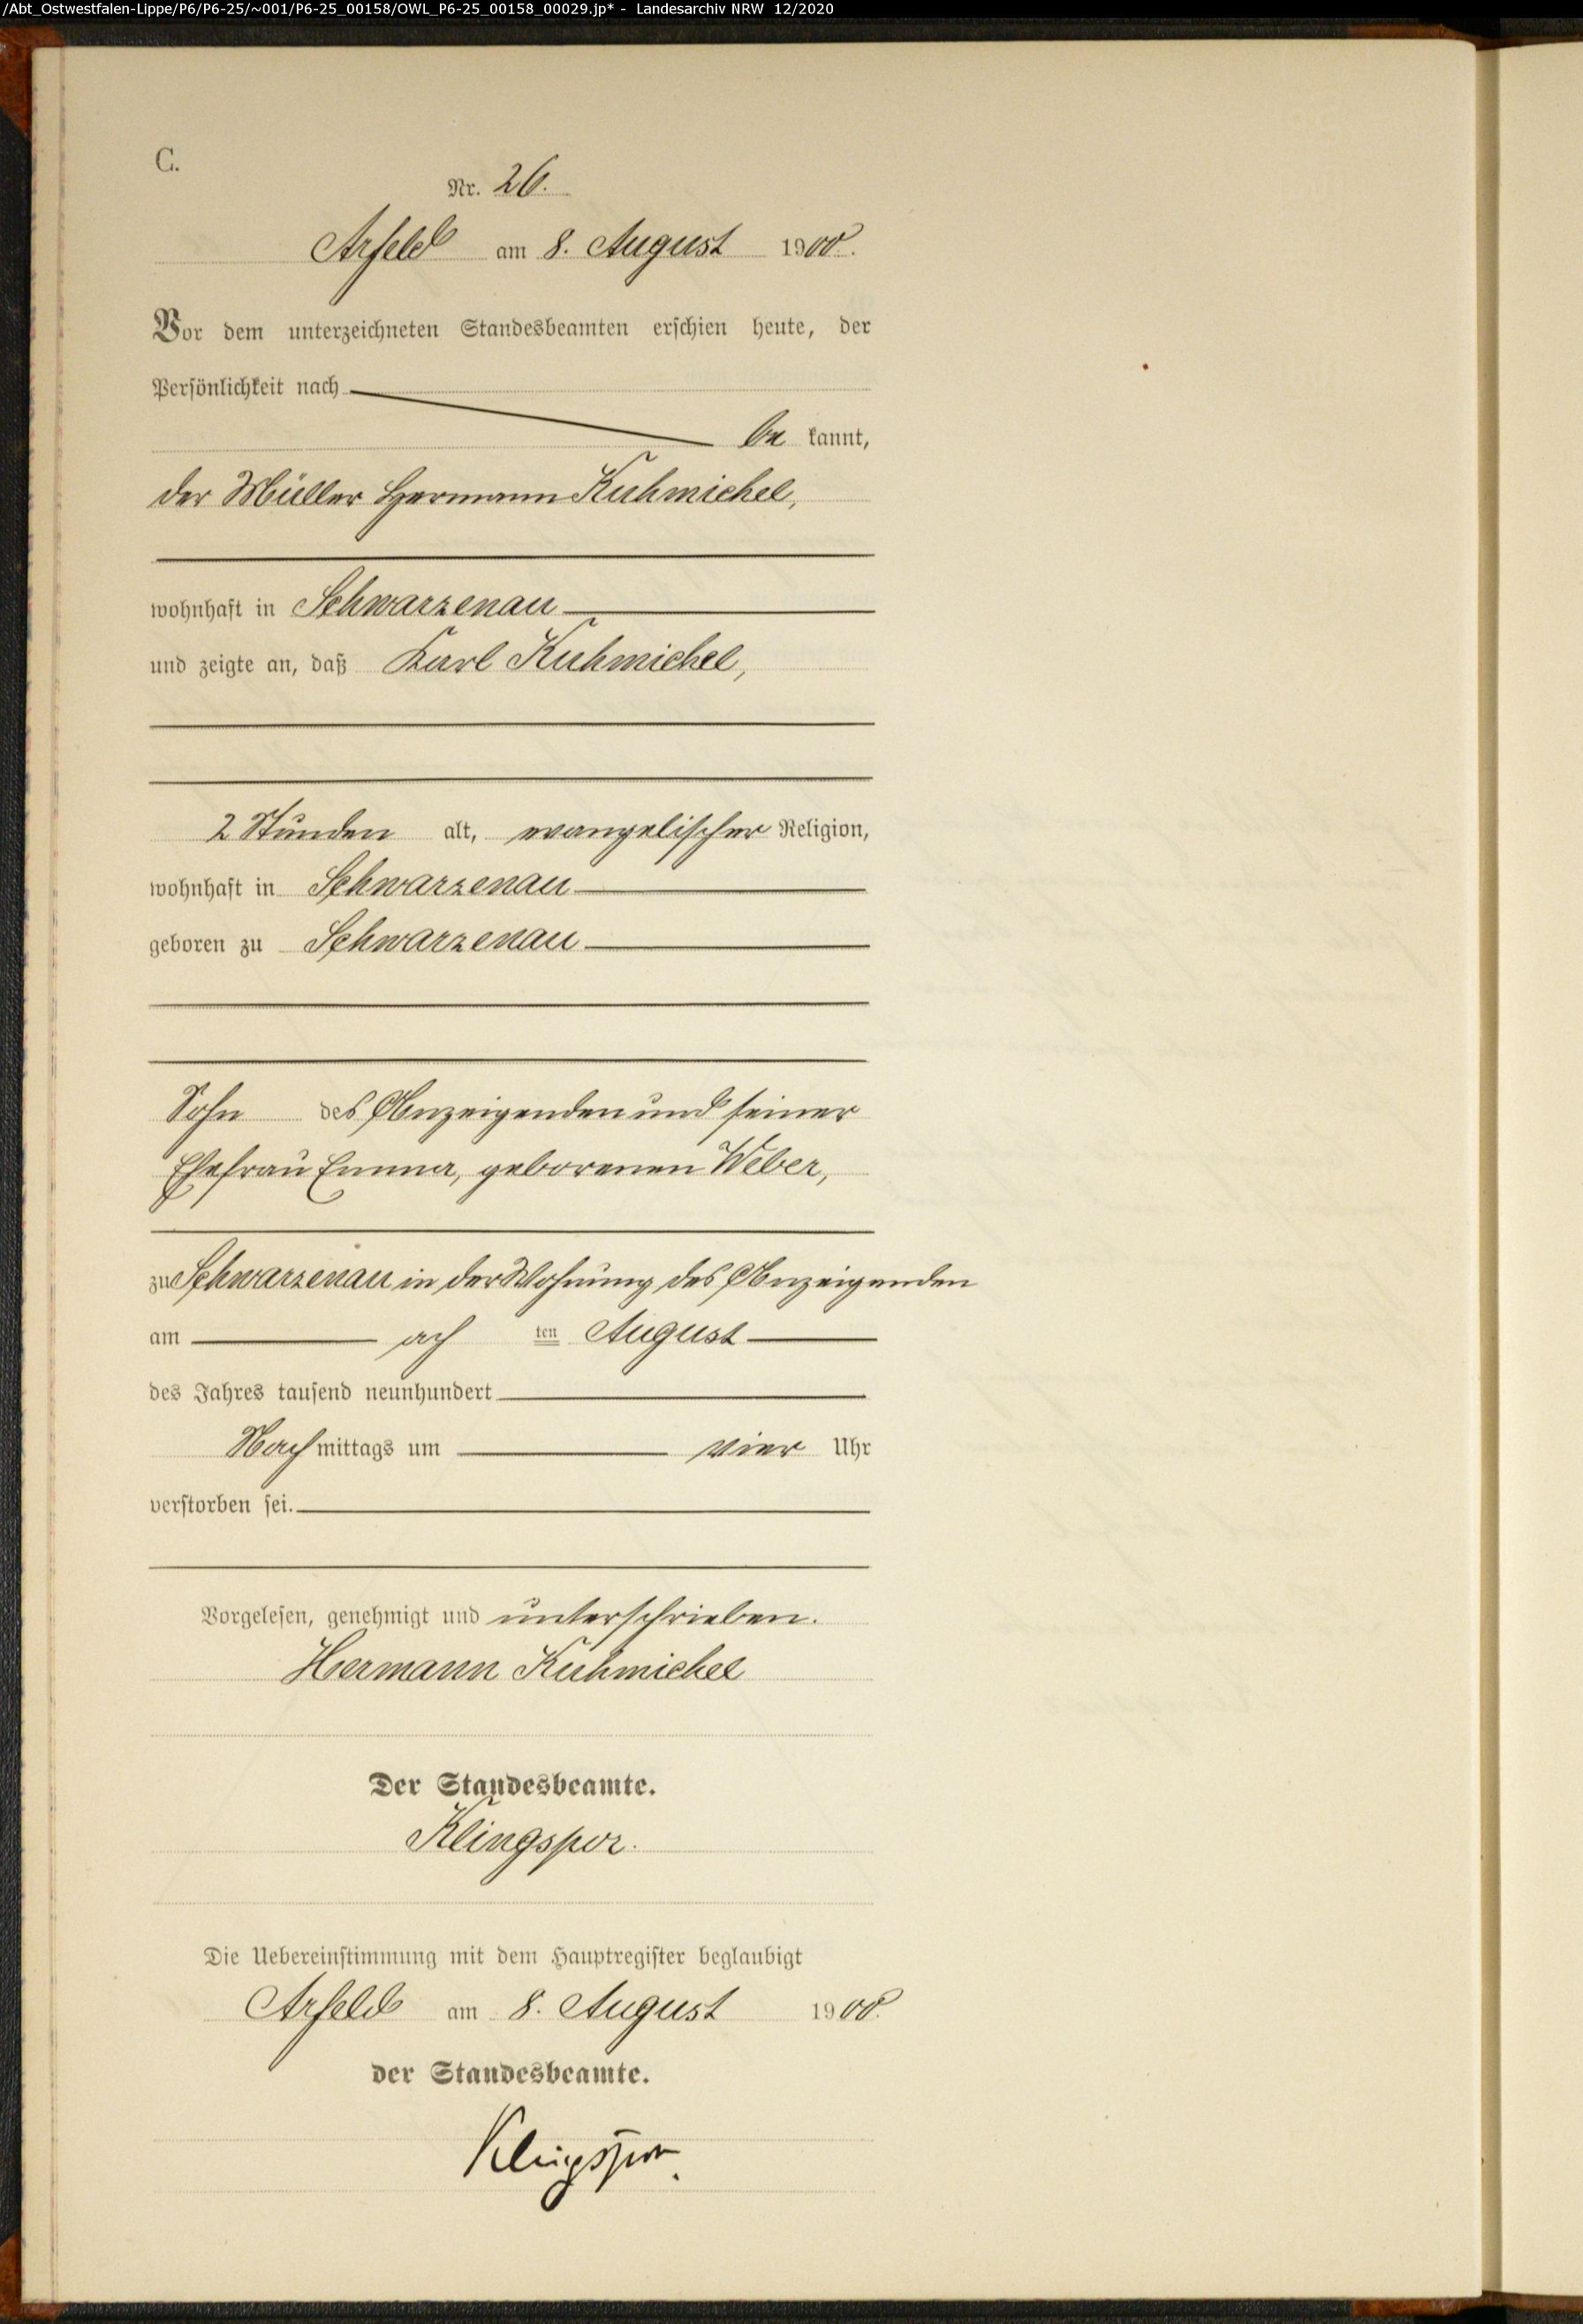 /Abt_Ostwestfalen-Lippe/P6/P6-25/~001/P6-25_00158/OWL_P6-25_00158_00029.jp* - Landesarchiv NRW 12/2020
C.
Nr. 26.
Arfeld am 8. August 1900.
Vor dem unterzeichneten Standesbeamten erschien heute, der
Persönlichkeit nach
be kannt,
der Müller Hermann Kuhmichel,
wohnhaft in Schwarzenau
und zeigte an, daß Karl Kuhmichel,
2 Stunden alt, evangelischer Religion,
wohnhaft in Schwarzenau
geboren zu Schwarzenau
Sohn des Anzeigenden und seiner
Ehefrau Emma, geborenen Weber,
zu Schwarzenau in der Wohnung des Anzeigenden
am ach ten August
des Jahres tausend neunhundert
Nach mittags um vier Uhr
verstorben sei.
Vorgelesen, genehmigt und unterschrieben.
Hermann Kuhmichel
Der Standesbeamte.
Klingspor.
Die Uebereinstimmung mit dem Hauptregister beglaubigt
Arfeld am 8. August 1900.
der Standesbeamte.
Klingspor.